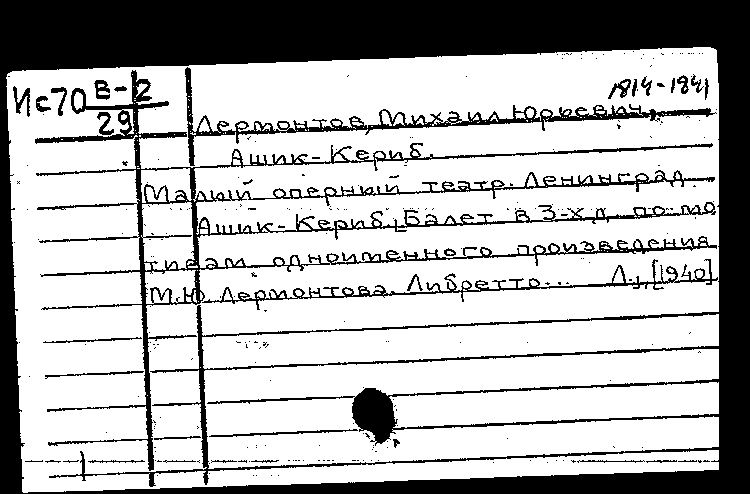 Ис70 В-2
29
1814-1841
Лермонтов, Михаил Юрьевич,
Ашик-Кериб.
Малый оперный театр. Ленинград
Ашик-Кериб. Балет в 3-х д. по мо
тивам одноименного произведения
М.Ю. Лермонтова. Либретто... Л., [1940]